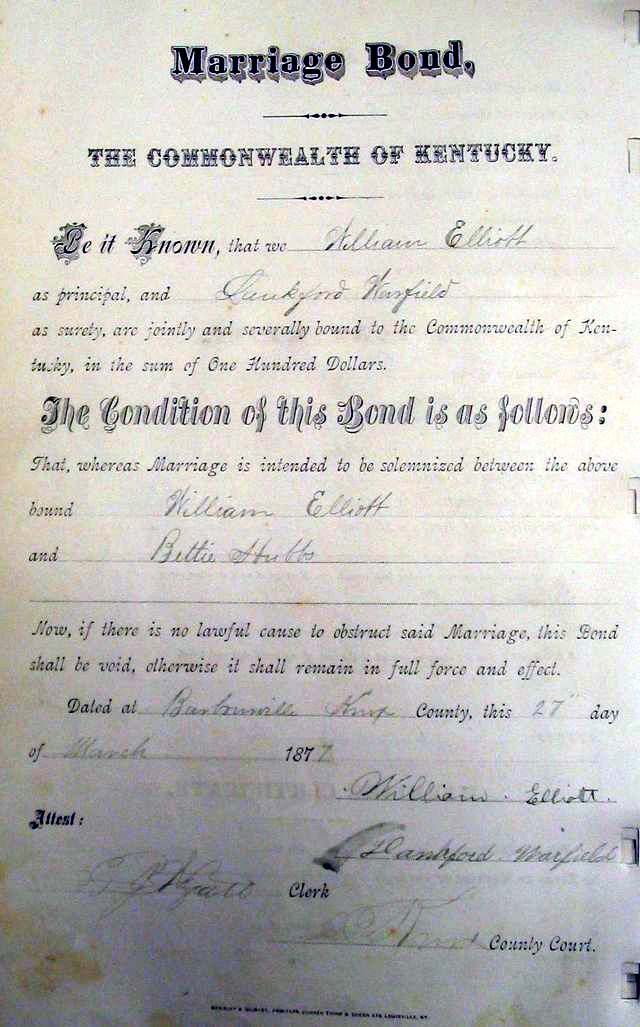 Marriage Bond.
THE COMMONWEALTH OF KENTUCKY.
Be it Known, that we William Elliott
as principal, and Lankford Warfield
as surety, are jointly and severally bound to the Commonwealth of Ken-
tucky, in the sum of One Hundred Dollars.
The Condition of this Bond is as follows:
That, whereas Marriage is intended to be solemnized between the above
bound William Elliott
and Bettie Hubbs
Now, if there is no lawful cause to obstruct said Marriage, this Bond
shall be void, otherwise it shall remain in full force and effect.
Dated at Barbourville Knox County, this 27" day
of March 1877
William Elliott.
Attest:
Lankford Warfield
Clerk
Knox County Court.